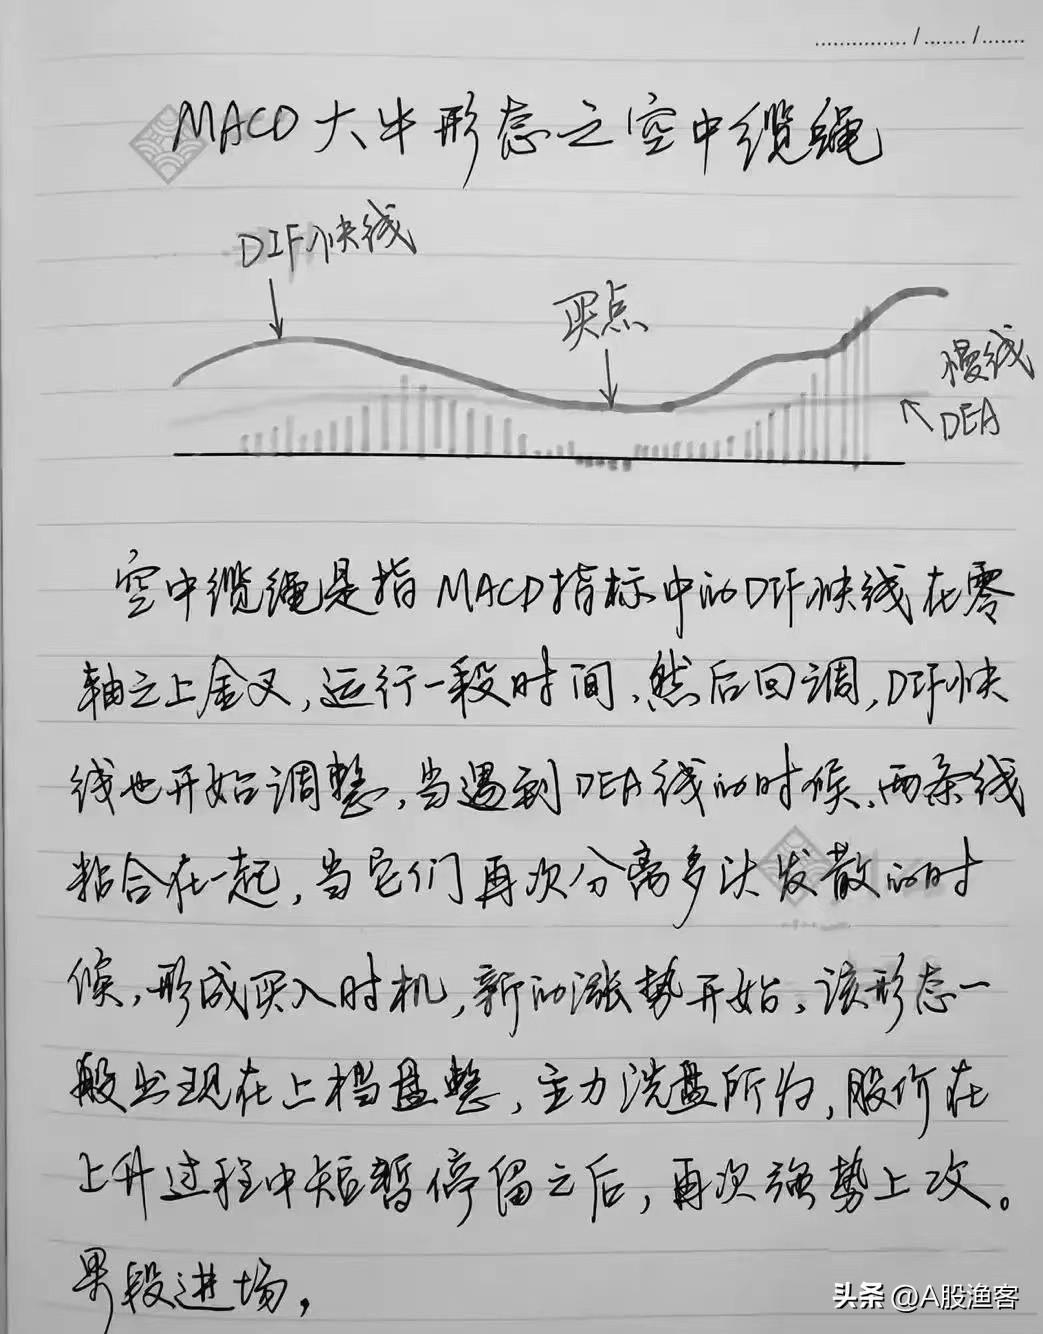 ............... / ....... / .......
MACD大牛形态之空中缆绳
DIF快线
买点
慢线
DEA
空中缆绳是指MACD指标中的DIF快线在零
轴之上金叉，运行一段时间，然后回调，DIF快
线也开始调整，当遇到DEA线的时候，两条线
粘合在一起，当它们再次分离多头发散的时
候，形成买入时机，新的涨势开始，该形态一
般出现在上档盘整，主力洗盘所为，股价在
上升过程中短暂停留之后，再次强势上攻。
果段进场，
头条 @A股渔客